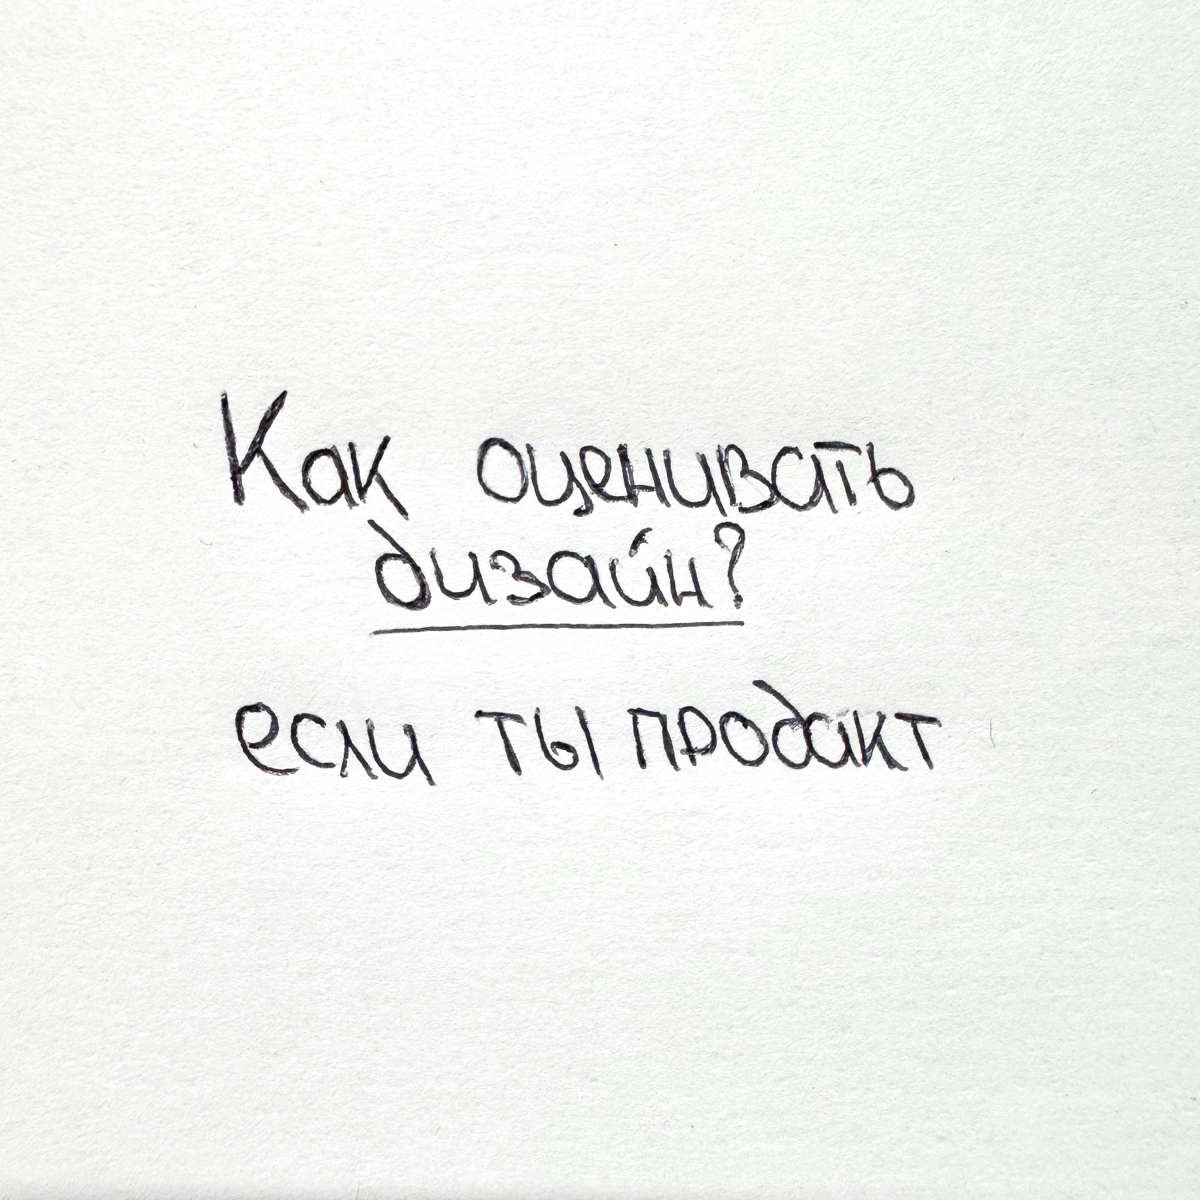 Как оценивать
дизайн?
если ты продакт